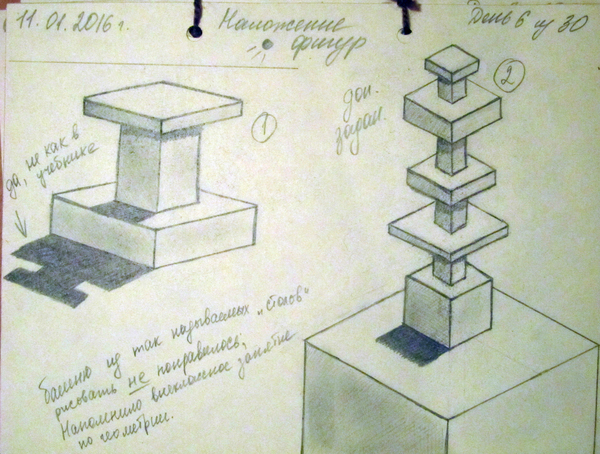 11.01.2016 г.
Наложение
фигур
День 6 из 30
1
2
доп.
задан.
да, не как в
учебнике
башню из так называемых „столов"
рисовать не понравилось;
Напомнило внеклассное занятие
по геометрии.